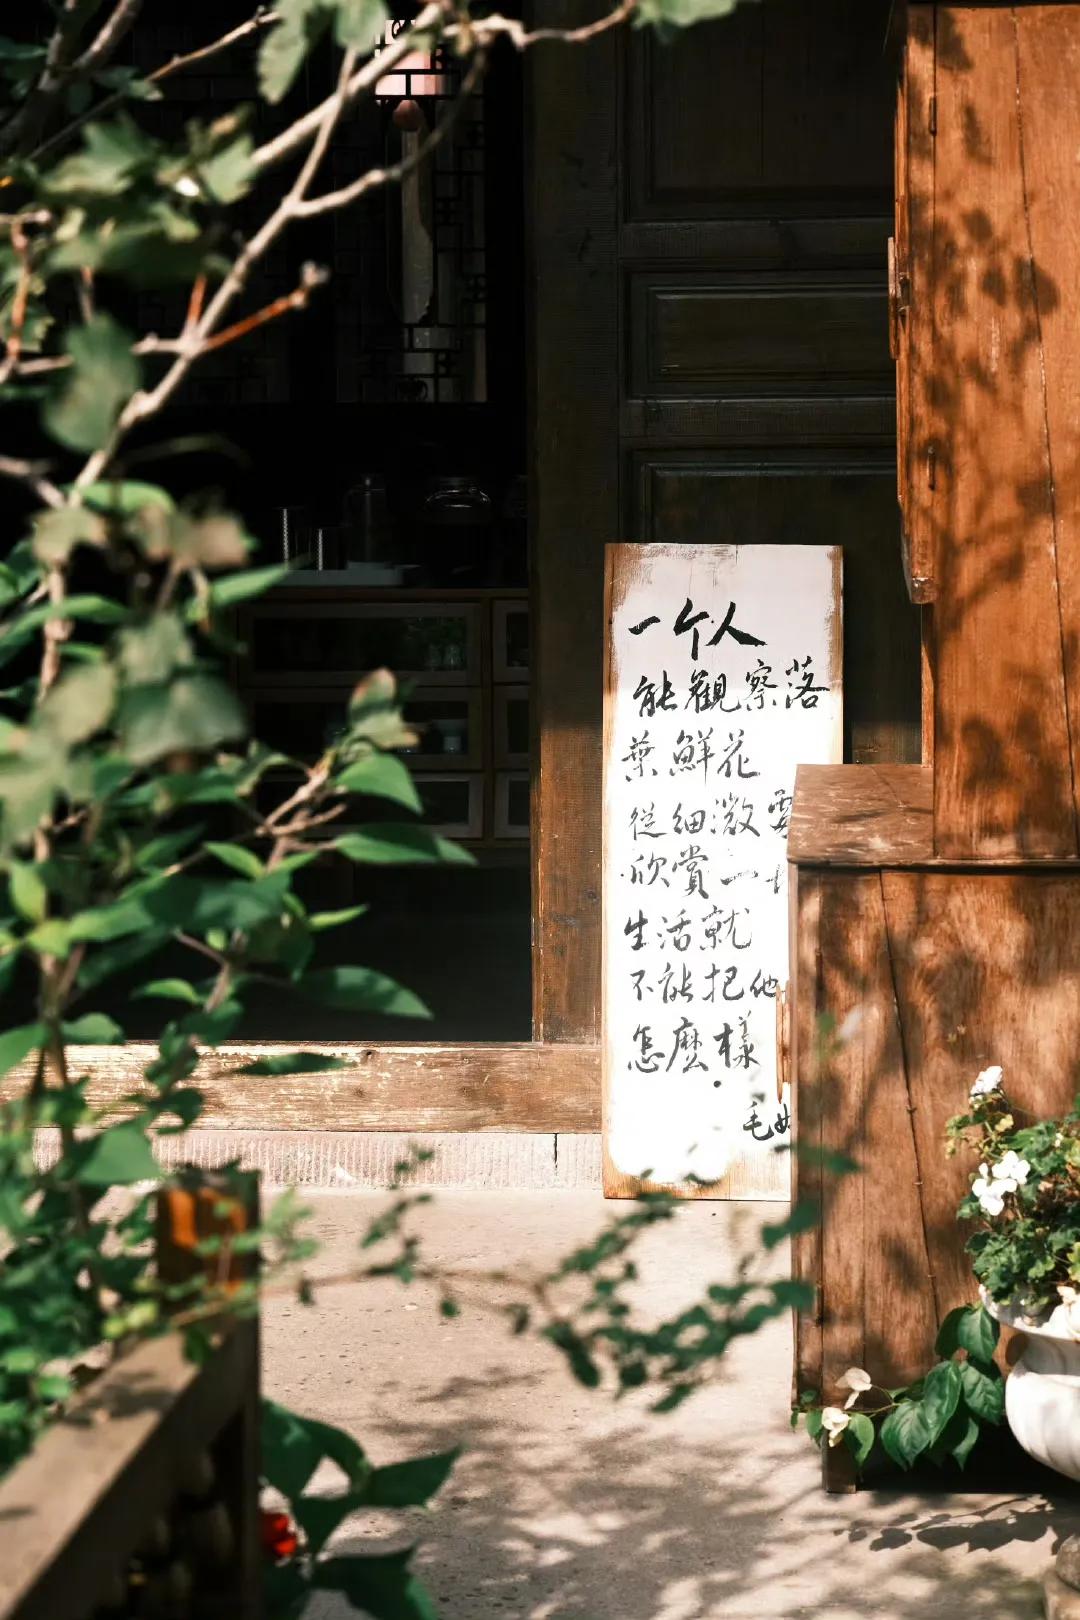 一个人
能觀察落
葉鮮花
從細微
欣賞一
生活就
不能把他
怎麼樣
毛